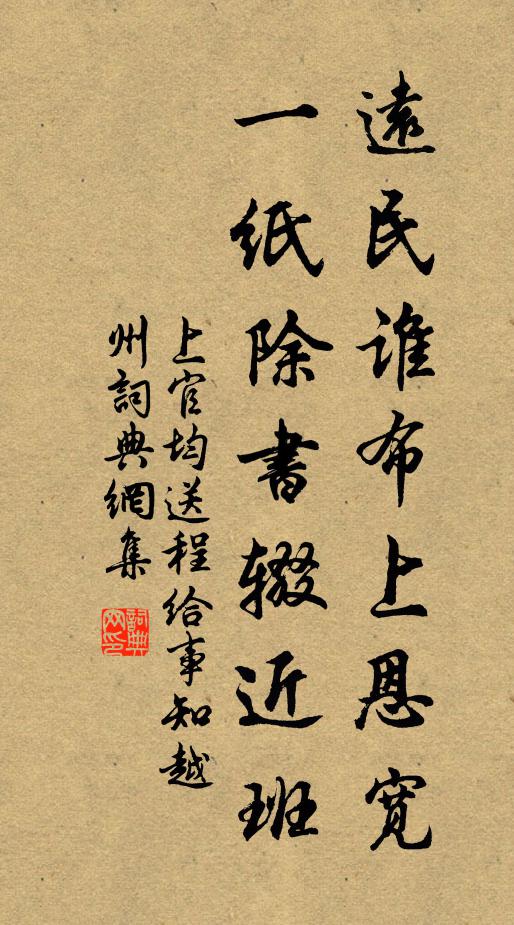 遠民誰布上恩寬
一紙除書辍近班
上官均送程給事知越
州詞典網集
詞典网印